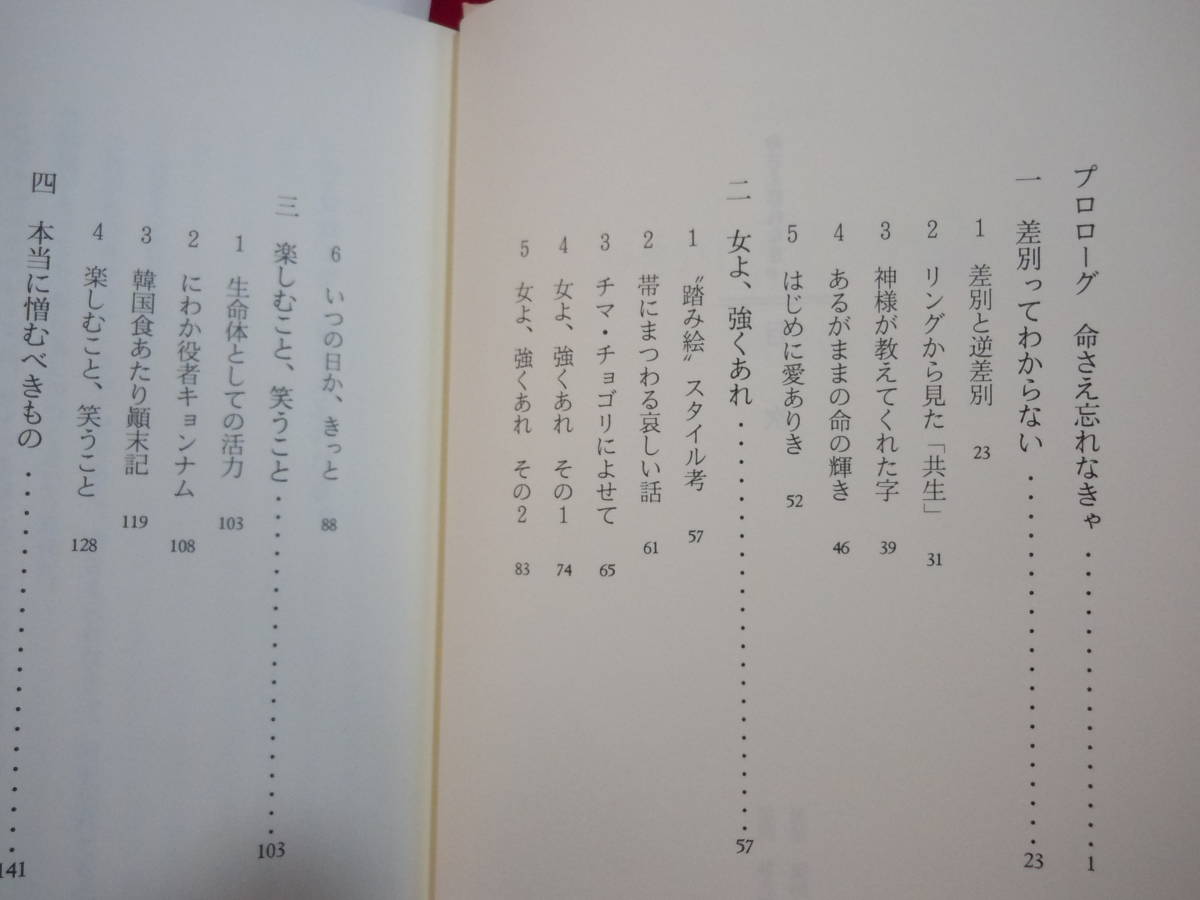 プロローグ　命さえ忘れなきゃ‥‥‥‥‥‥‥‥‥‥1
一　差別ってわからない‥‥‥‥‥‥‥‥‥‥23
1　差別と逆差別　23
2　リングから見た「共生」　31
3　神様が教えてくれた字　39
4　あるがままの命の輝き　46
5　はじめに愛ありき　52
二　女よ、強くあれ‥‥‥‥‥‥‥‥‥‥57
1　〝踏み絵〟スタイル考　57
2　帯にまつわる哀しい話　61
3　チマ・チョゴリによせて　65
4　女よ、強くあれ　その1　74
5　女よ、強くあれ　その2　83
6　いつの日か、きっと　88
三　楽しむこと、笑うこと‥‥‥‥‥‥‥‥‥‥103
1　生命体としての活力　103
2　にわか役者キョンナム　108
3　韓国食あたり顚末記　119
4　楽しむこと、笑うこと　128
四　本当に憎むべきもの‥‥‥‥‥‥‥‥‥‥141